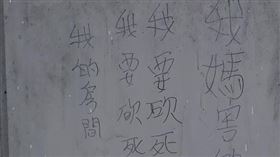 我媽害
我要砍死
我要砍死
我的房間